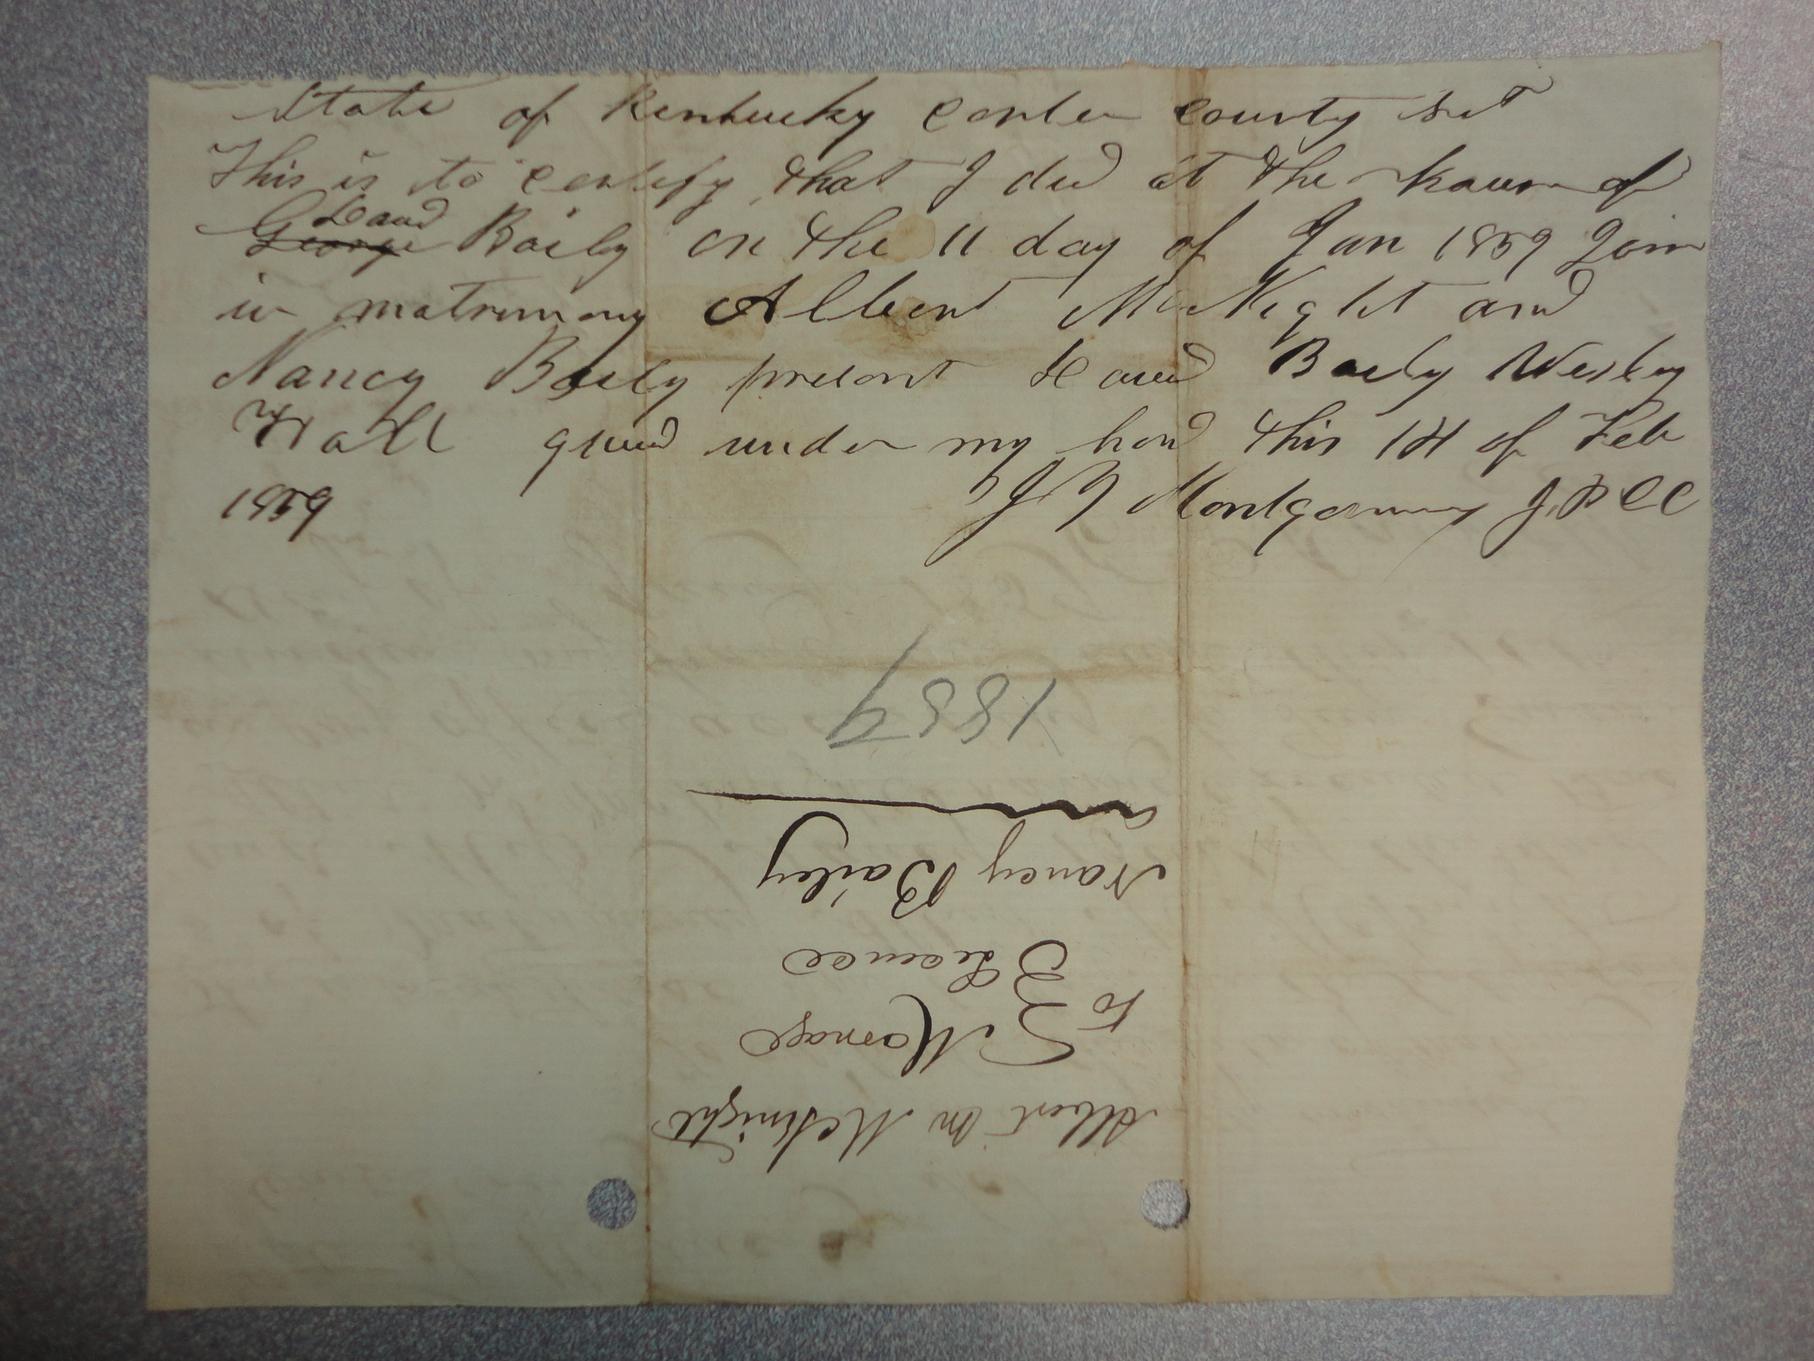 State of Kentucky Carter County Sct
This is to certify that I did at the house of
David
George Baily on the 11 day of Jan 1859 Join
in matrimony Albert McKight and
Nancy Baily present David Baily Wesley
Hall given under my hand this 1st of Feb
1859
Montgomery J.P.C.C
Albert M McKnight
To } Marrage
Licence
Nancy Bailey
1859